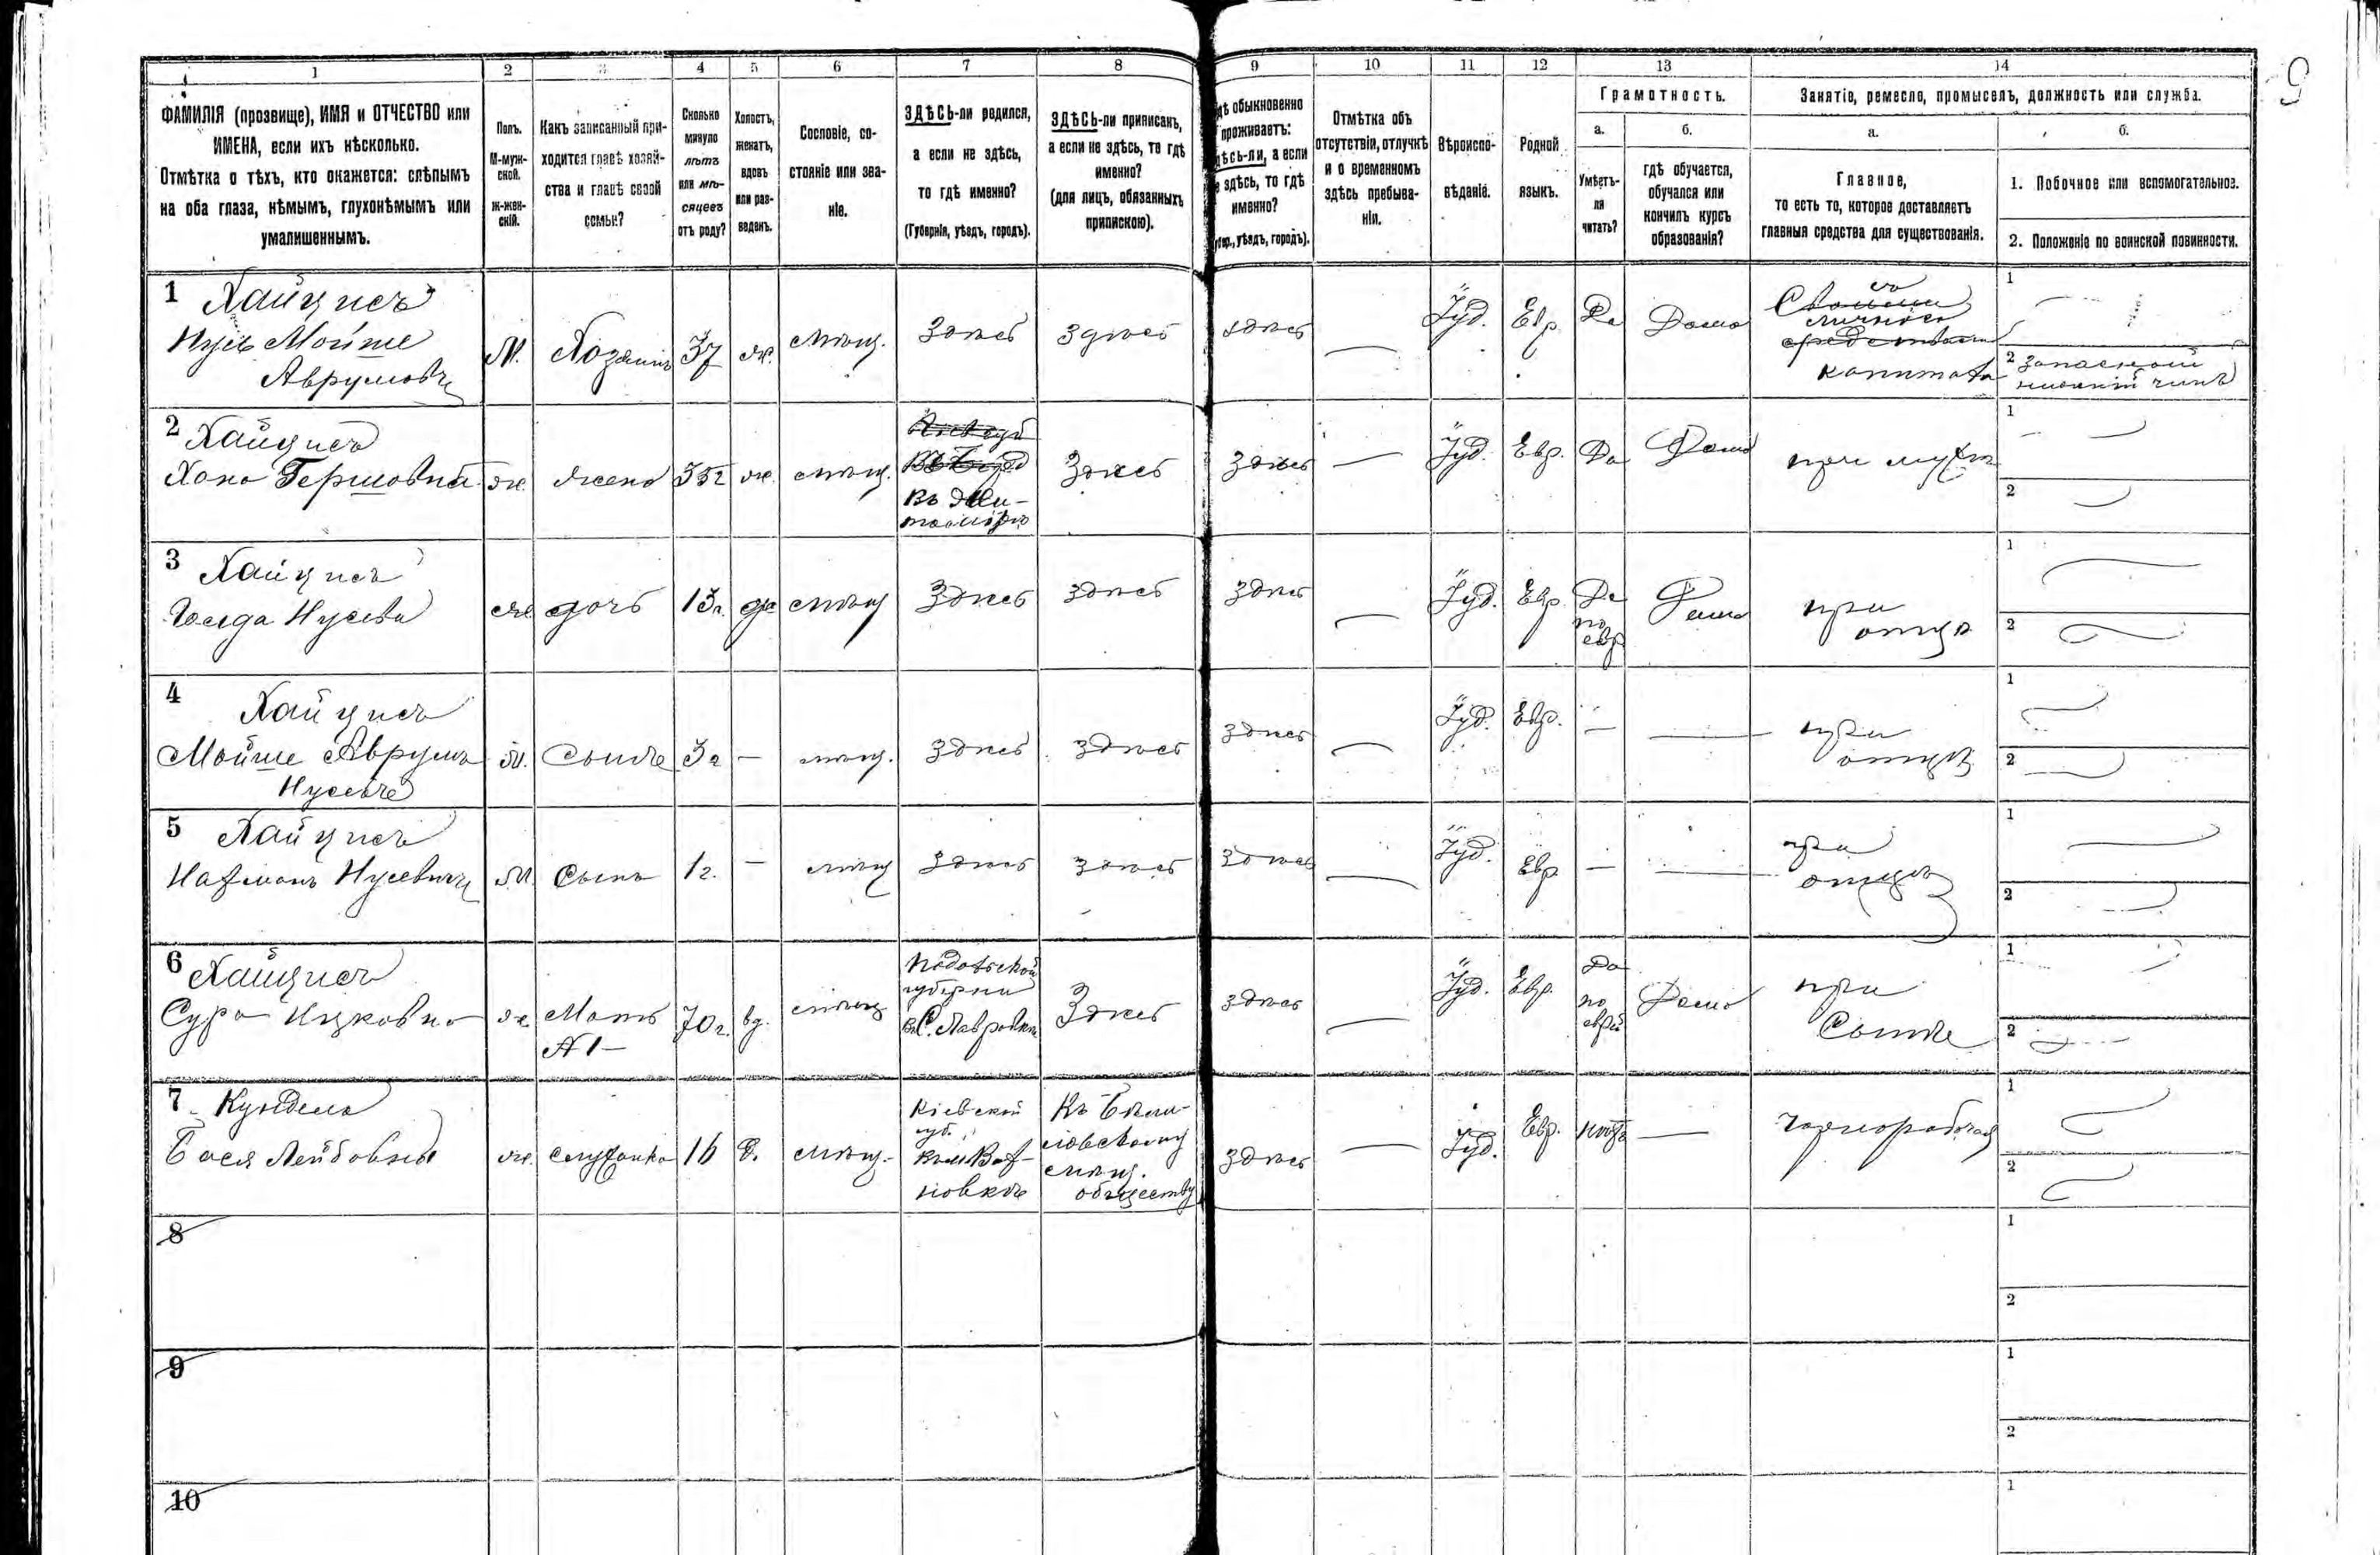 9
1 2 3 4 5 6 7 8 9 10 11 12 13 14
ФАМИЛІЯ (прозвище), ИМЯ и ОТЧЕСТВО или
ИМЕНА, если ихъ нѣсколько.
Отмѣтка о тѣхъ, кто окажется: слѣпымъ
на оба глаза, нѣмымъ, глухонѣмымъ или
умалишеннымъ.
Полъ.
М-муж-
ской.
Ж-жен-
скій.
Какъ записанный при-
ходится главѣ хозяй-
ства и главѣ своей
семьи?
Сколько
минуло
лѣтъ
или мѣ-
сяцевъ
отъ роду?
Холостъ,
женатъ,
вдовъ
или раз-
веденъ.
Сословіе, со-
стояніе или зва-
ніе.
ЗДѢСЬ-ли родился,
а если не здѣсь,
то гдѣ именно?
(Губернія, уѣздъ, городъ).
ЗДѢСЬ-ли приписанъ,
а если не здѣсь, то гдѣ
именно?
(для лицъ, обязанныхъ
припискою).
дѣ обыкновенно
проживаетъ:
дѣсь-ли, а если
е здѣсь, то гдѣ
именно?
убер., уѣздъ, городъ).
Отмѣтка объ
отсутствіи, отлучкѣ
и о временномъ
здѣсь пребыва-
ніи.
Вѣроиспо-
вѣданіе.
Родной
языкъ.
Грамотность.
а.
Умѣетъ-
ли
читать?
б.
гдѣ обучается,
обучался или
кончилъ курсъ
образованія?
Занятіе, ремесло, промыселъ, должность или служба.
а.
Главное,
то есть то, которое доставляетъ
главныя средства для существованія.
б.
1. Побочное или вспомогательное.
2. Положеніе по воинской повинности.
1 Хайцисъ
Нусь Мойше
Аврумовъ
М. Хозяинъ 37 ж. мѣщ. Здѣсь здѣсь здѣсь — Іуд. Евр. Да Дома
съ
капитала
1
2 запасной
нижній чинъ
2 Хайцисъ
Хана Гершовна
ж. жена 35г ж. мѣщ.
въ Жи-
томірѣ
Здѣсь здѣсь — Іуд. Евр. Да Дома при мужѣ
1
2
3 Хайцисъ
Нусева
ж дочь 13г. мѣщ Здѣсь здѣсь здѣсь — Іуд. Евр. Да
по
евр
Дома
при
отцѣ
1
2
4 Хайцисъ
Мойше Аврумъ
М. Сынъ 3г — мѣщ. здѣсь здѣсь здѣсь — Іуд. Евр. — —
при
отцѣ
1
2
5 Хайцисъ
Нахманъ Нусевичъ
М. Сынъ 1г. — мѣщ здѣсь здѣсь здѣсь — Іуд. Евр — —
при
отцѣ
1
2
6 Хайцисъ
Сура Ицковна
ж. Мать
№ 1—
70г. вд. мѣщ
Подольской
губерніи
Здѣсь здѣсь — Іуд. Евр.
Да
по
еврей
Дома
при
Сынѣ
1
2
7
Бася Лейбовна
ж. служанка 16 д. мѣщ.
Кіевской
губ.
мѣщ.
обществу
здѣсь — Іуд. Евр. — чернорабочая
1
2
8
1
2
9
1
2
10
1